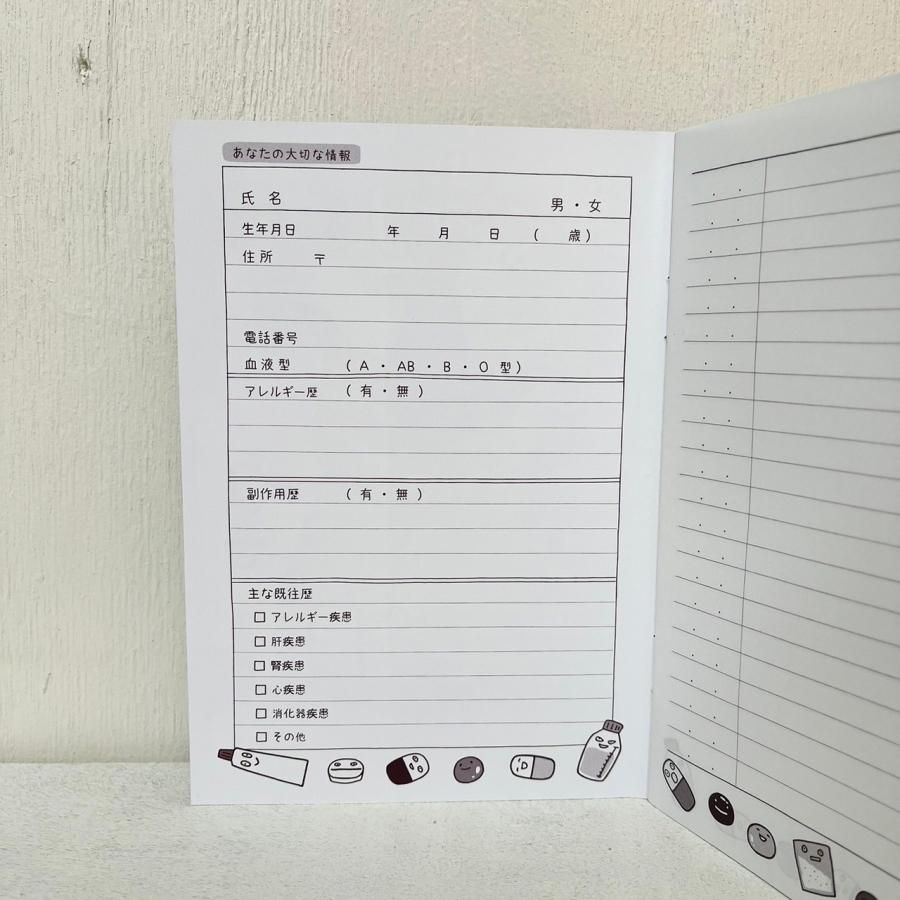 あなたの大切な情報
氏 名 男 ・ 女
生年月日 年 月 日 ( 歳)
住所 〒
電話番号
血液型 ( A ・ AB ・ B ・ O 型)
アレルギー歴 ( 有 ・ 無 )
副作用歴 ( 有 ・ 無 )
主な既往歴
□ アレルギー疾患
□ 肝疾患
□ 腎疾患
□ 心疾患
□ 消化器疾患
□ その他